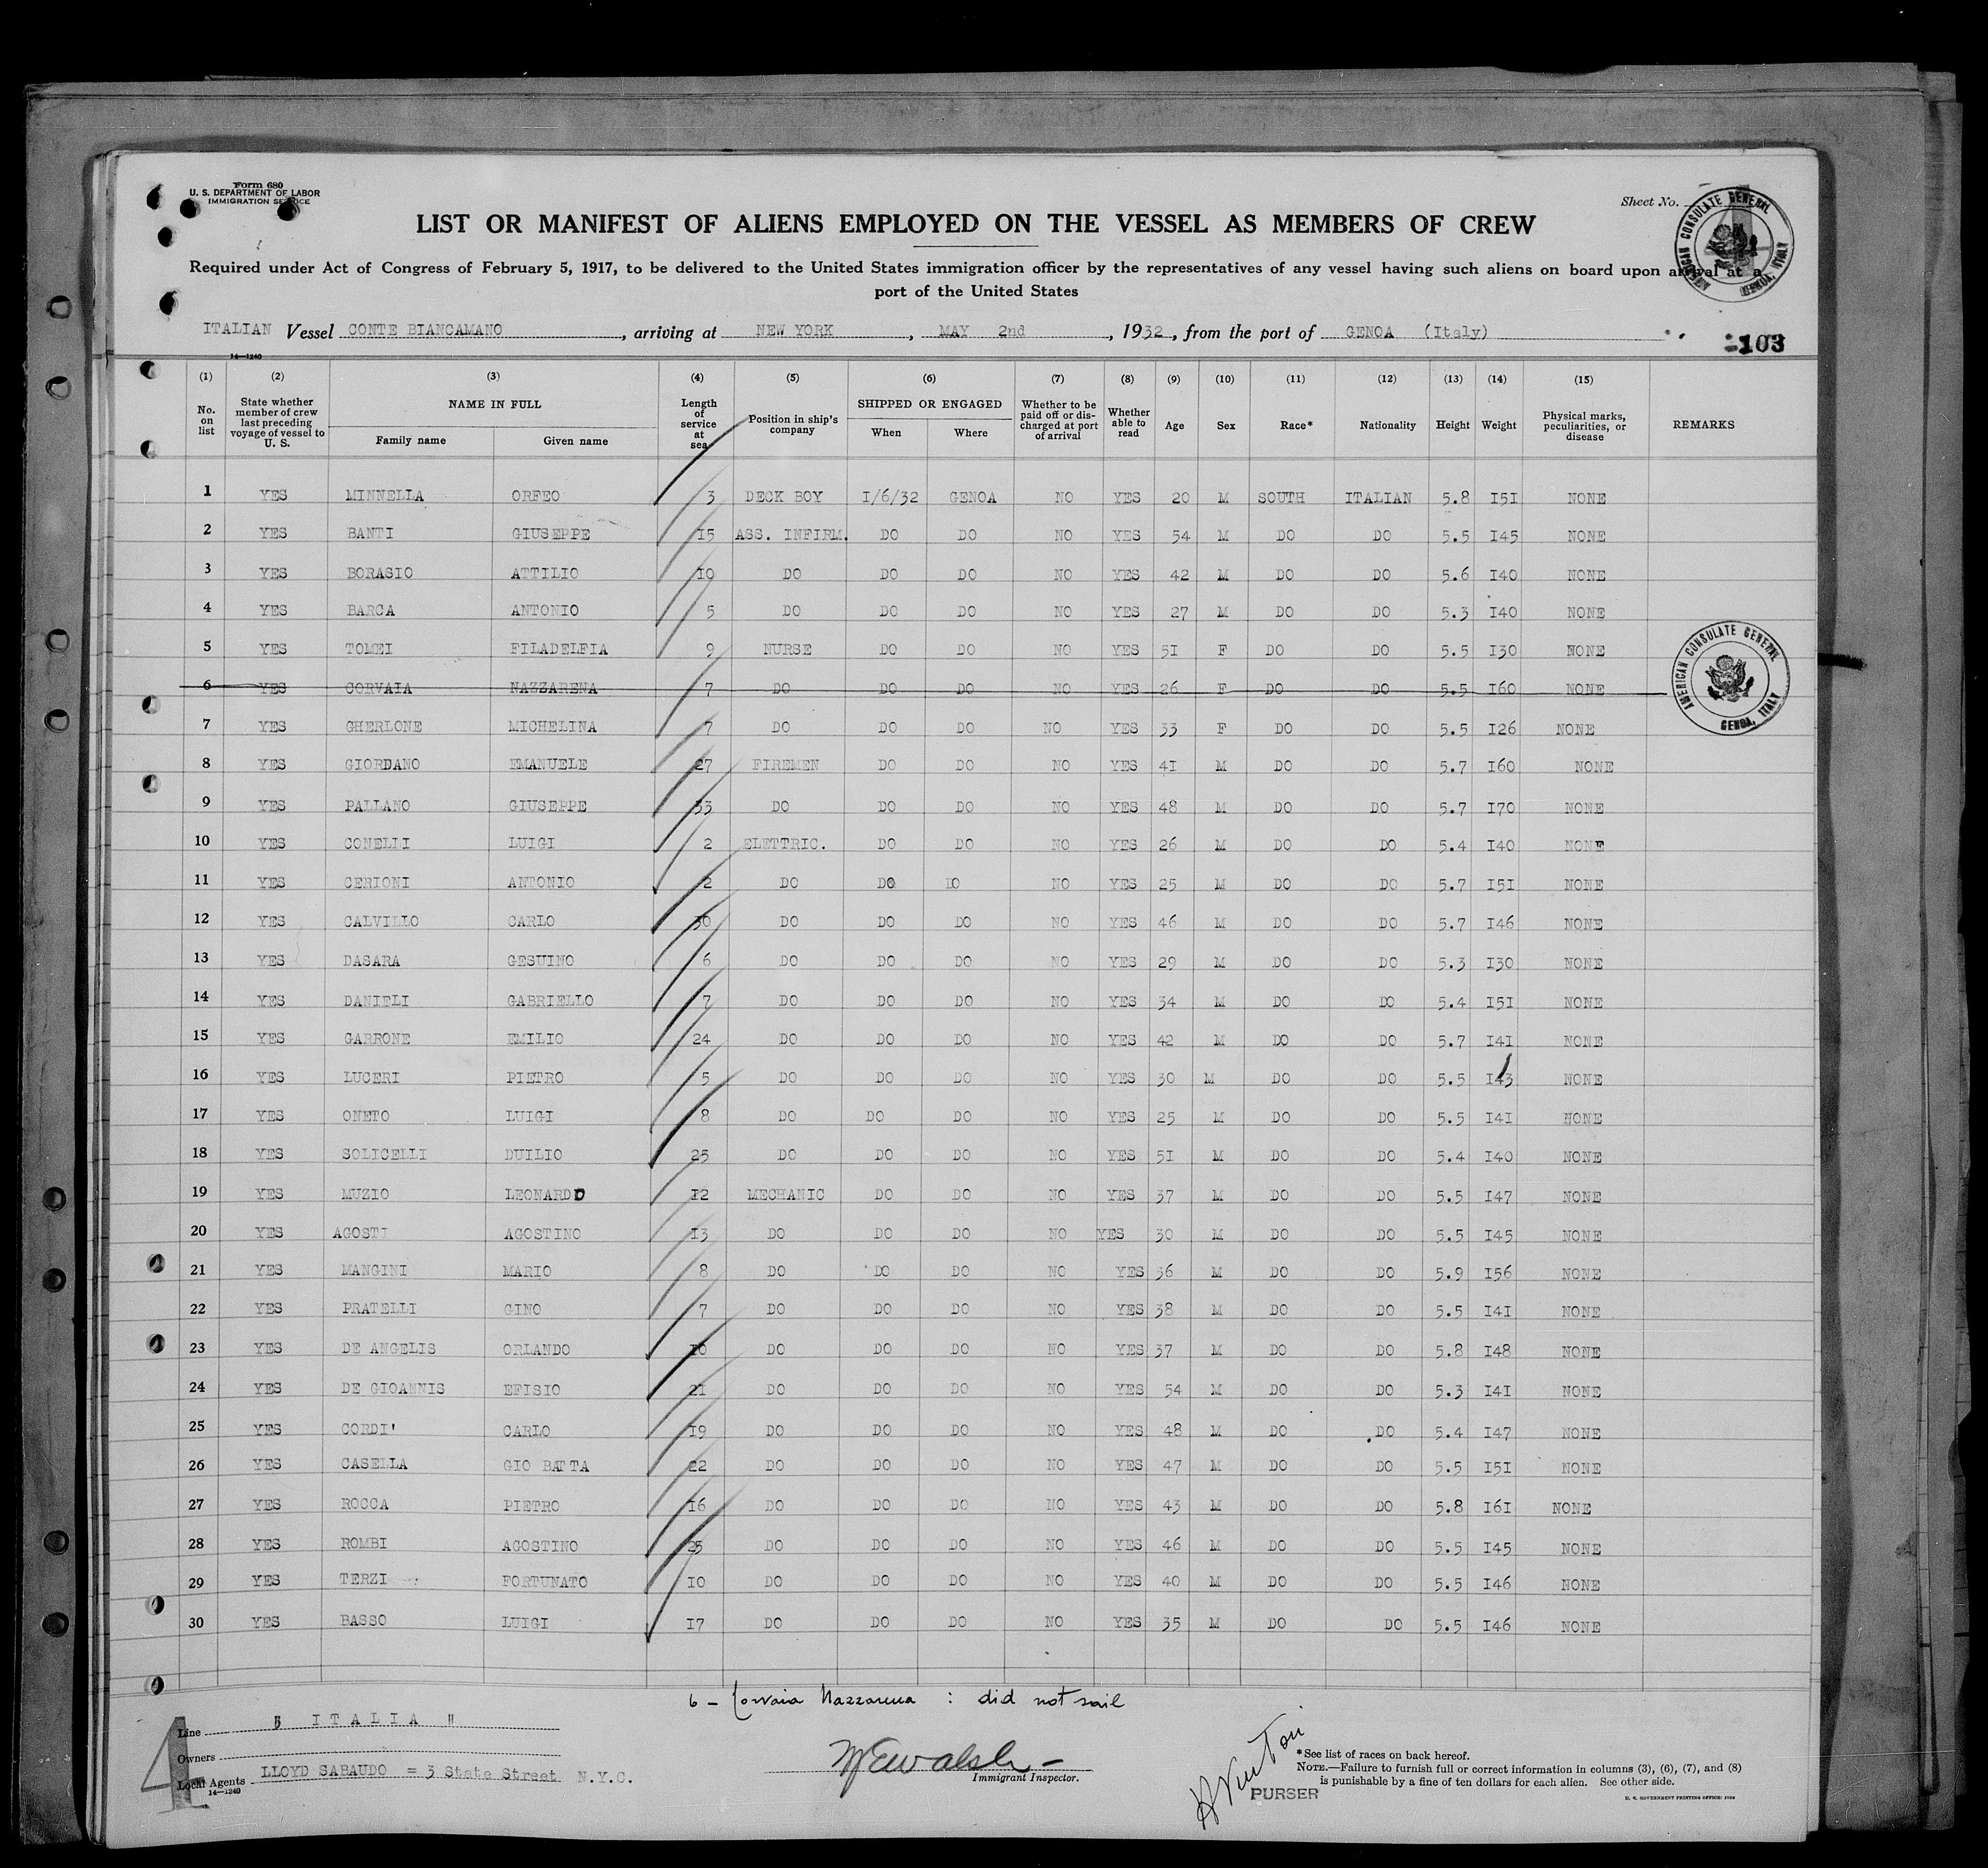 Form 680
U. S. DEPARTMENT OF LABOR
IMMIGRATION SERVICE
Sheet No.
AMERICAN CONSULATE GENERAL GENOA, ITALY
LIST OR MANIFEST OF ALIENS EMPLOYED ON THE VESSEL AS MEMBERS OF CREW
Required under Act of Congress of February 5, 1917, to be delivered to the United States immigration officer by the representatives of any vessel having such aliens on board upon arrival at a
port of the United States
ITALIAN Vessel CONTE BIANCAMANO, arriving at NEW YORK, MAY 2nd, 1932, from the port of GENOA (Italy)
103
14—1240
(1) (2) (3) (4) (5) (6) (7) (8) (9) (10) (11) (12) (13) (14) (15)
No. on list State whether member of crew last preceding voyage of vessel to U. S. NAME IN FULL Family name Given name Length of service at sea Position in ship's company SHIPPED OR ENGAGED When Where Whether to be paid off or discharged at port of arrival Whether able to read Age Sex Race* Nationality Height Weight Physical marks, peculiarities, or disease REMARKS
1 YES MINNELLA ORFEO 3 DECK BOY I/6/32 GENOA NO YES 20 M SOUTH ITALIAN 5.8 I5I NONE
2 YES BANTI GIUSEPPE I5 ASS. INFIRM. DO DO NO YES 54 M DO DO 5.5 I45 NONE
3 YES BORASIO ATTILIO I0 DO DO DO NO YES 42 M DO DO 5.6 I40 NONE
4 YES BARCA ANTONIO 5 DO DO DO NO YES 27 M DO DO 5.3 I40 NONE
5 YES TOMEI FILADELFIA 9 NURSE DO DO NO YES 5I F DO DO 5.5 I30 NONE
6 YES CORVAIA NAZZARENA 7 DO DO DO NO YES 26 F DO DO 5.5 I60 NONE
AMERICAN CONSULATE GENERAL GENOA, ITALY
7 YES GHERLONE MICHELINA 7 DO DO DO NO YES 33 F DO DO 5.5 I26 NONE
8 YES GIORDANO EMANUELE 27 FIREMEN DO DO NO YES 4I M DO DO 5.7 I60 NONE
9 YES PALLANO GIUSEPPE 33 DO DO DO NO YES 48 M DO DO 5.7 I70 NONE
10 YES CONELLI LUIGI 2 ELETTRIC. DO DO NO YES 26 M DO DO 5.4 I40 NONE
11 YES CERIONI ANTONIO 2 DO DO DO NO YES 25 M DO DO 5.7 I5I NONE
12 YES CALVILLO CARLO 30 DO DO DO NO YES 46 M DO DO 5.7 I46 NONE
13 YES DASARA GESUINO 6 DO DO DO NO YES 29 M DO DO 5.3 I30 NONE
14 YES DANIELI GABRIELLO 7 DO DO DO NO YES 34 M DO DO 5.4 I5I NONE
15 YES GARRONE EMILIO 24 DO DO DO NO YES 42 M DO DO 5.7 I4I NONE
16 YES LUCERI PIETRO 5 DO DO DO NO YES 30 M DO DO 5.5 I43 NONE
17 YES ONETO LUIGI 8 DO DO DO NO YES 25 M DO DO 5.5 I4I NONE
18 YES SOLICELLI DUILIO 25 DO DO DO NO YES 5I M DO DO 5.4 I40 NONE
19 YES MUZIO LEONARDO I2 MECHANIC DO DO NO YES 37 M DO DO 5.5 I47 NONE
20 YES AGOSTI AGOSTINO I3 DO DO DO NO YES 30 M DO DO 5.5 I45 NONE
21 YES MANGINI MARIO 8 DO DO DO NO YES 36 M DO DO 5.9 I56 NONE
22 YES PRATELLI GINO 7 DO DO DO NO YES 38 M DO DO 5.5 I4I NONE
23 YES DE ANGELIS ORLANDO I0 DO DO DO NO YES 37 M DO DO 5.8 I48 NONE
24 YES DE GIOANNIS EFISIO 21 DO DO DO NO YES 54 M DO DO 5.3 I4I NONE
25 YES CORDI' CARLO I9 DO DO DO NO YES 48 M DO DO 5.4 I47 NONE
26 YES CASELLA GIO BATTA 22 DO DO DO NO YES 47 M DO DO 5.5 I5I NONE
27 YES ROCCA PIETRO I6 DO DO DO NO YES 43 M DO DO 5.8 I6I NONE
28 YES ROMBI AGOSTINO 25 DO DO DO NO YES 46 M DO DO 5.5 I45 NONE
29 YES TERZI FORTUNATO I0 DO DO DO NO YES 40 M DO DO 5.5 I46 NONE
30 YES BASSO LUIGI I7 DO DO DO NO YES 35 M DO DO 5.5 I46 NONE
6 — Corvaia Nazzarena : did not sail
Line " ITALIA "
Owners
Local Agents LLOYD SABAUDO = 3 State Street N.Y.C.
14—1240
4
WEWalsh
Immigrant Inspector.
PURSER
*See list of races on back hereof.
NOTE.—Failure to furnish full or correct information in columns (3), (6), (7), and (8)
is punishable by a fine of ten dollars for each alien. See other side.
U. S. GOVERNMENT PRINTING OFFICE: 1929